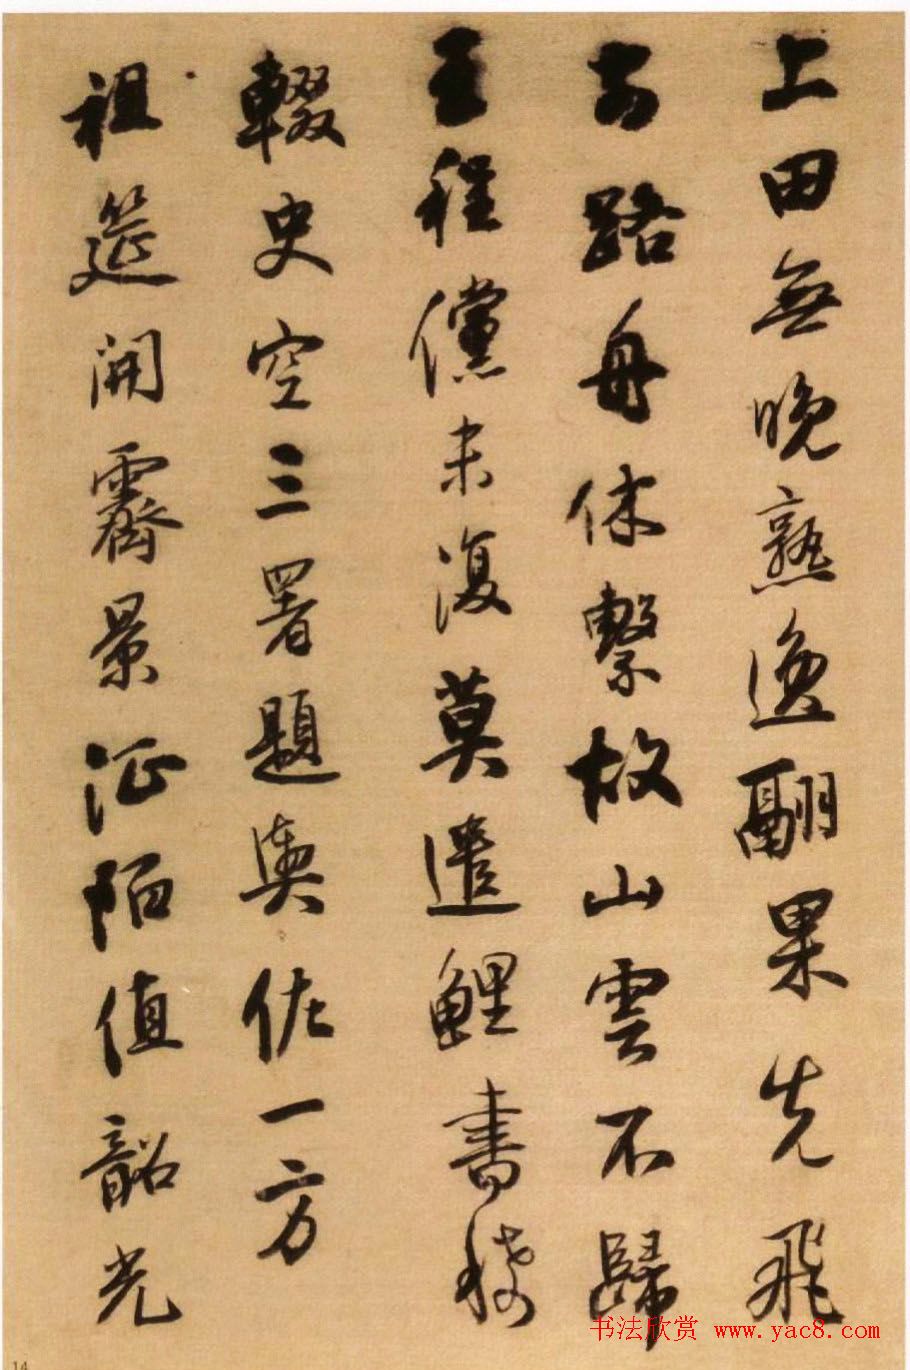 上田無晚熟逸翮果先飛
前路舟休繫故山雲不歸
王程儻未復莫遣鯉書稀
輟史空三署題輿佐一方
祖筵開霽景征陌值韶光
书法欣赏 www.yac8.com
14